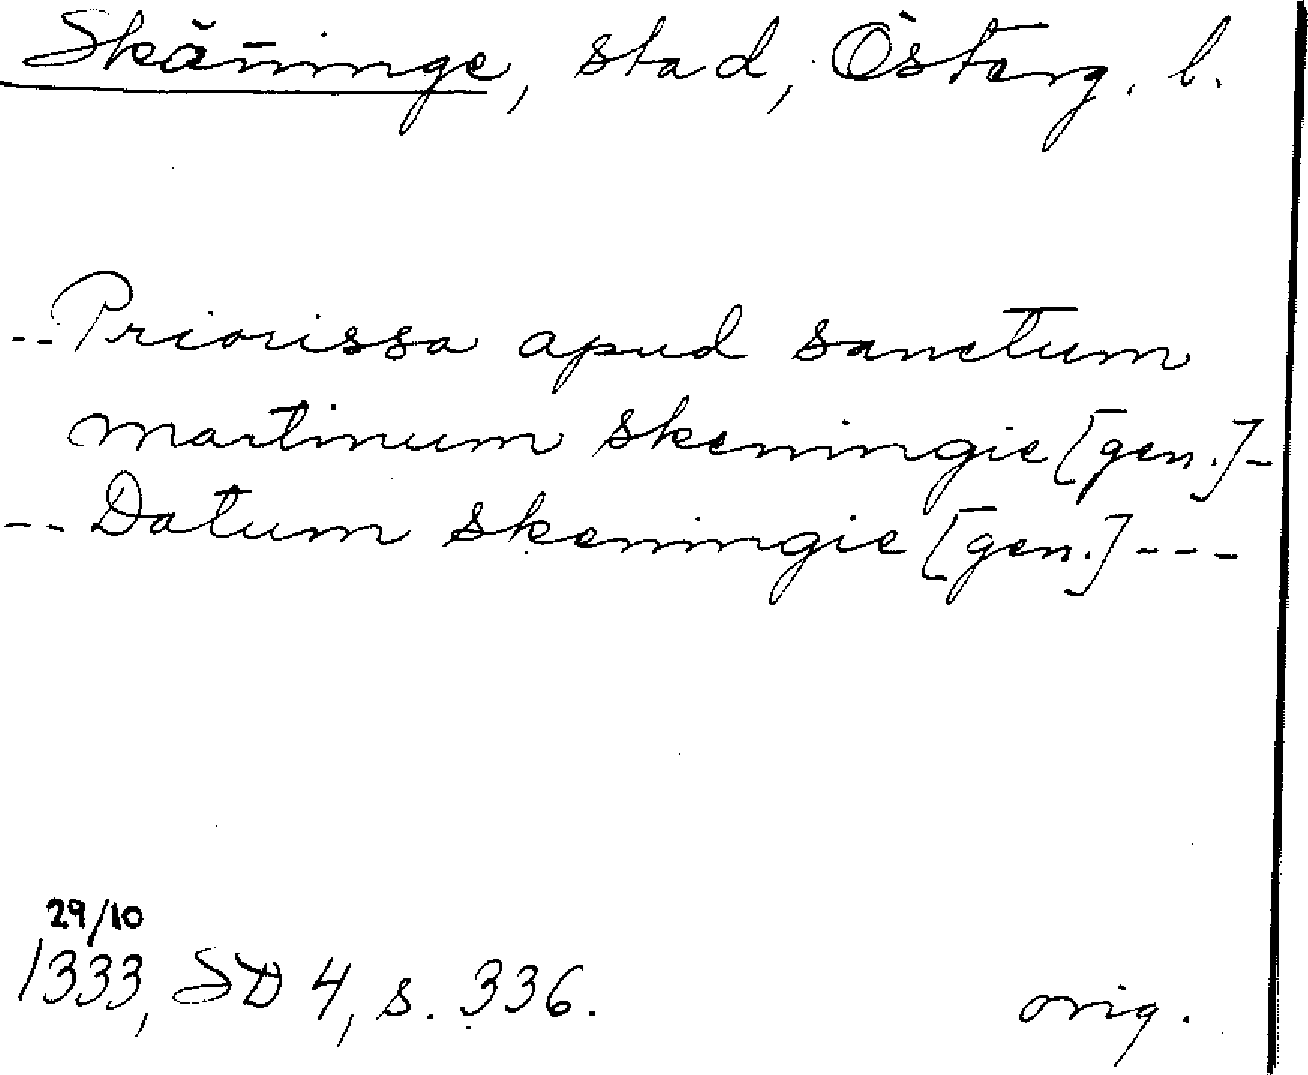 Skänninge, stad, Österg. l.
-- Priorissa apud sanctum
martinum skeningie [gen.] -
-- Datum skeningie [gen.] ---
29/10
1333, SD 4, s. 336.
orig.